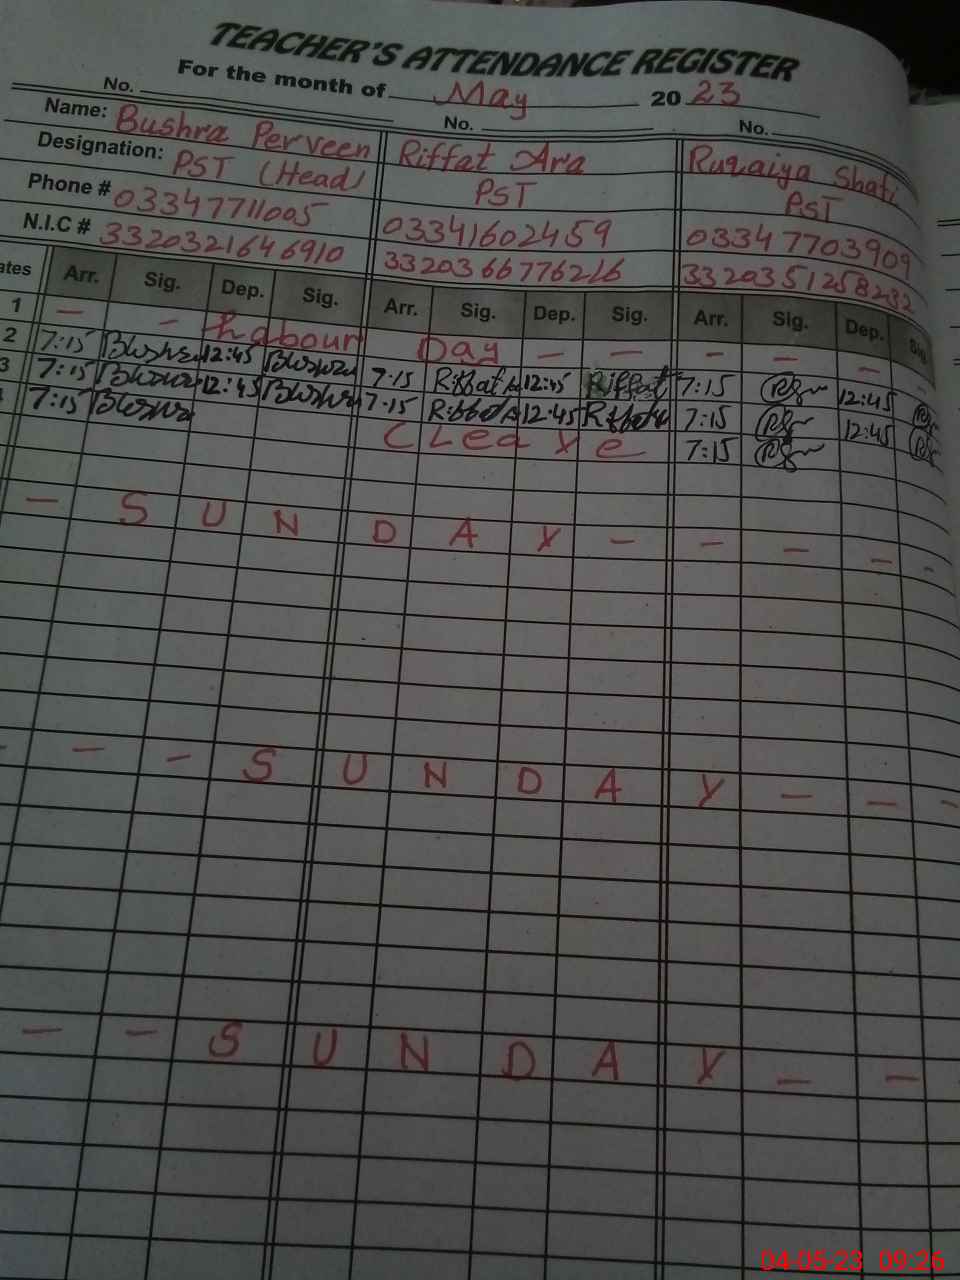 TEACHER'S ATTENDANCE REGISTER
For the month of May 2023
No. No. No.
Name: Bushra Perveen Riffat Ara Ruqaiya Shafi
Designation: PST (Head) PST PST
Phone # 03347711005 03341602459 03347703909
N.I.C # 3320321646910 3320366776216 3320351258232
ates Arr. Sig. Dep. Sig. Arr. Sig. Dep. Sig. Arr. Sig. Dep. Sig.
1 — — Labour Day — — — — —
2 7:15 12:45 7:15 Riffat A 12:45 Riffat 7:15 12:45
3 7:15 12:45 7:15 12:45 7:15 12:45
7:15 C Leave 7:15
— SUNDAY — — — — —
— — — SUNDAY — — —
— — SUNDAY — —
04-05-23 09:26